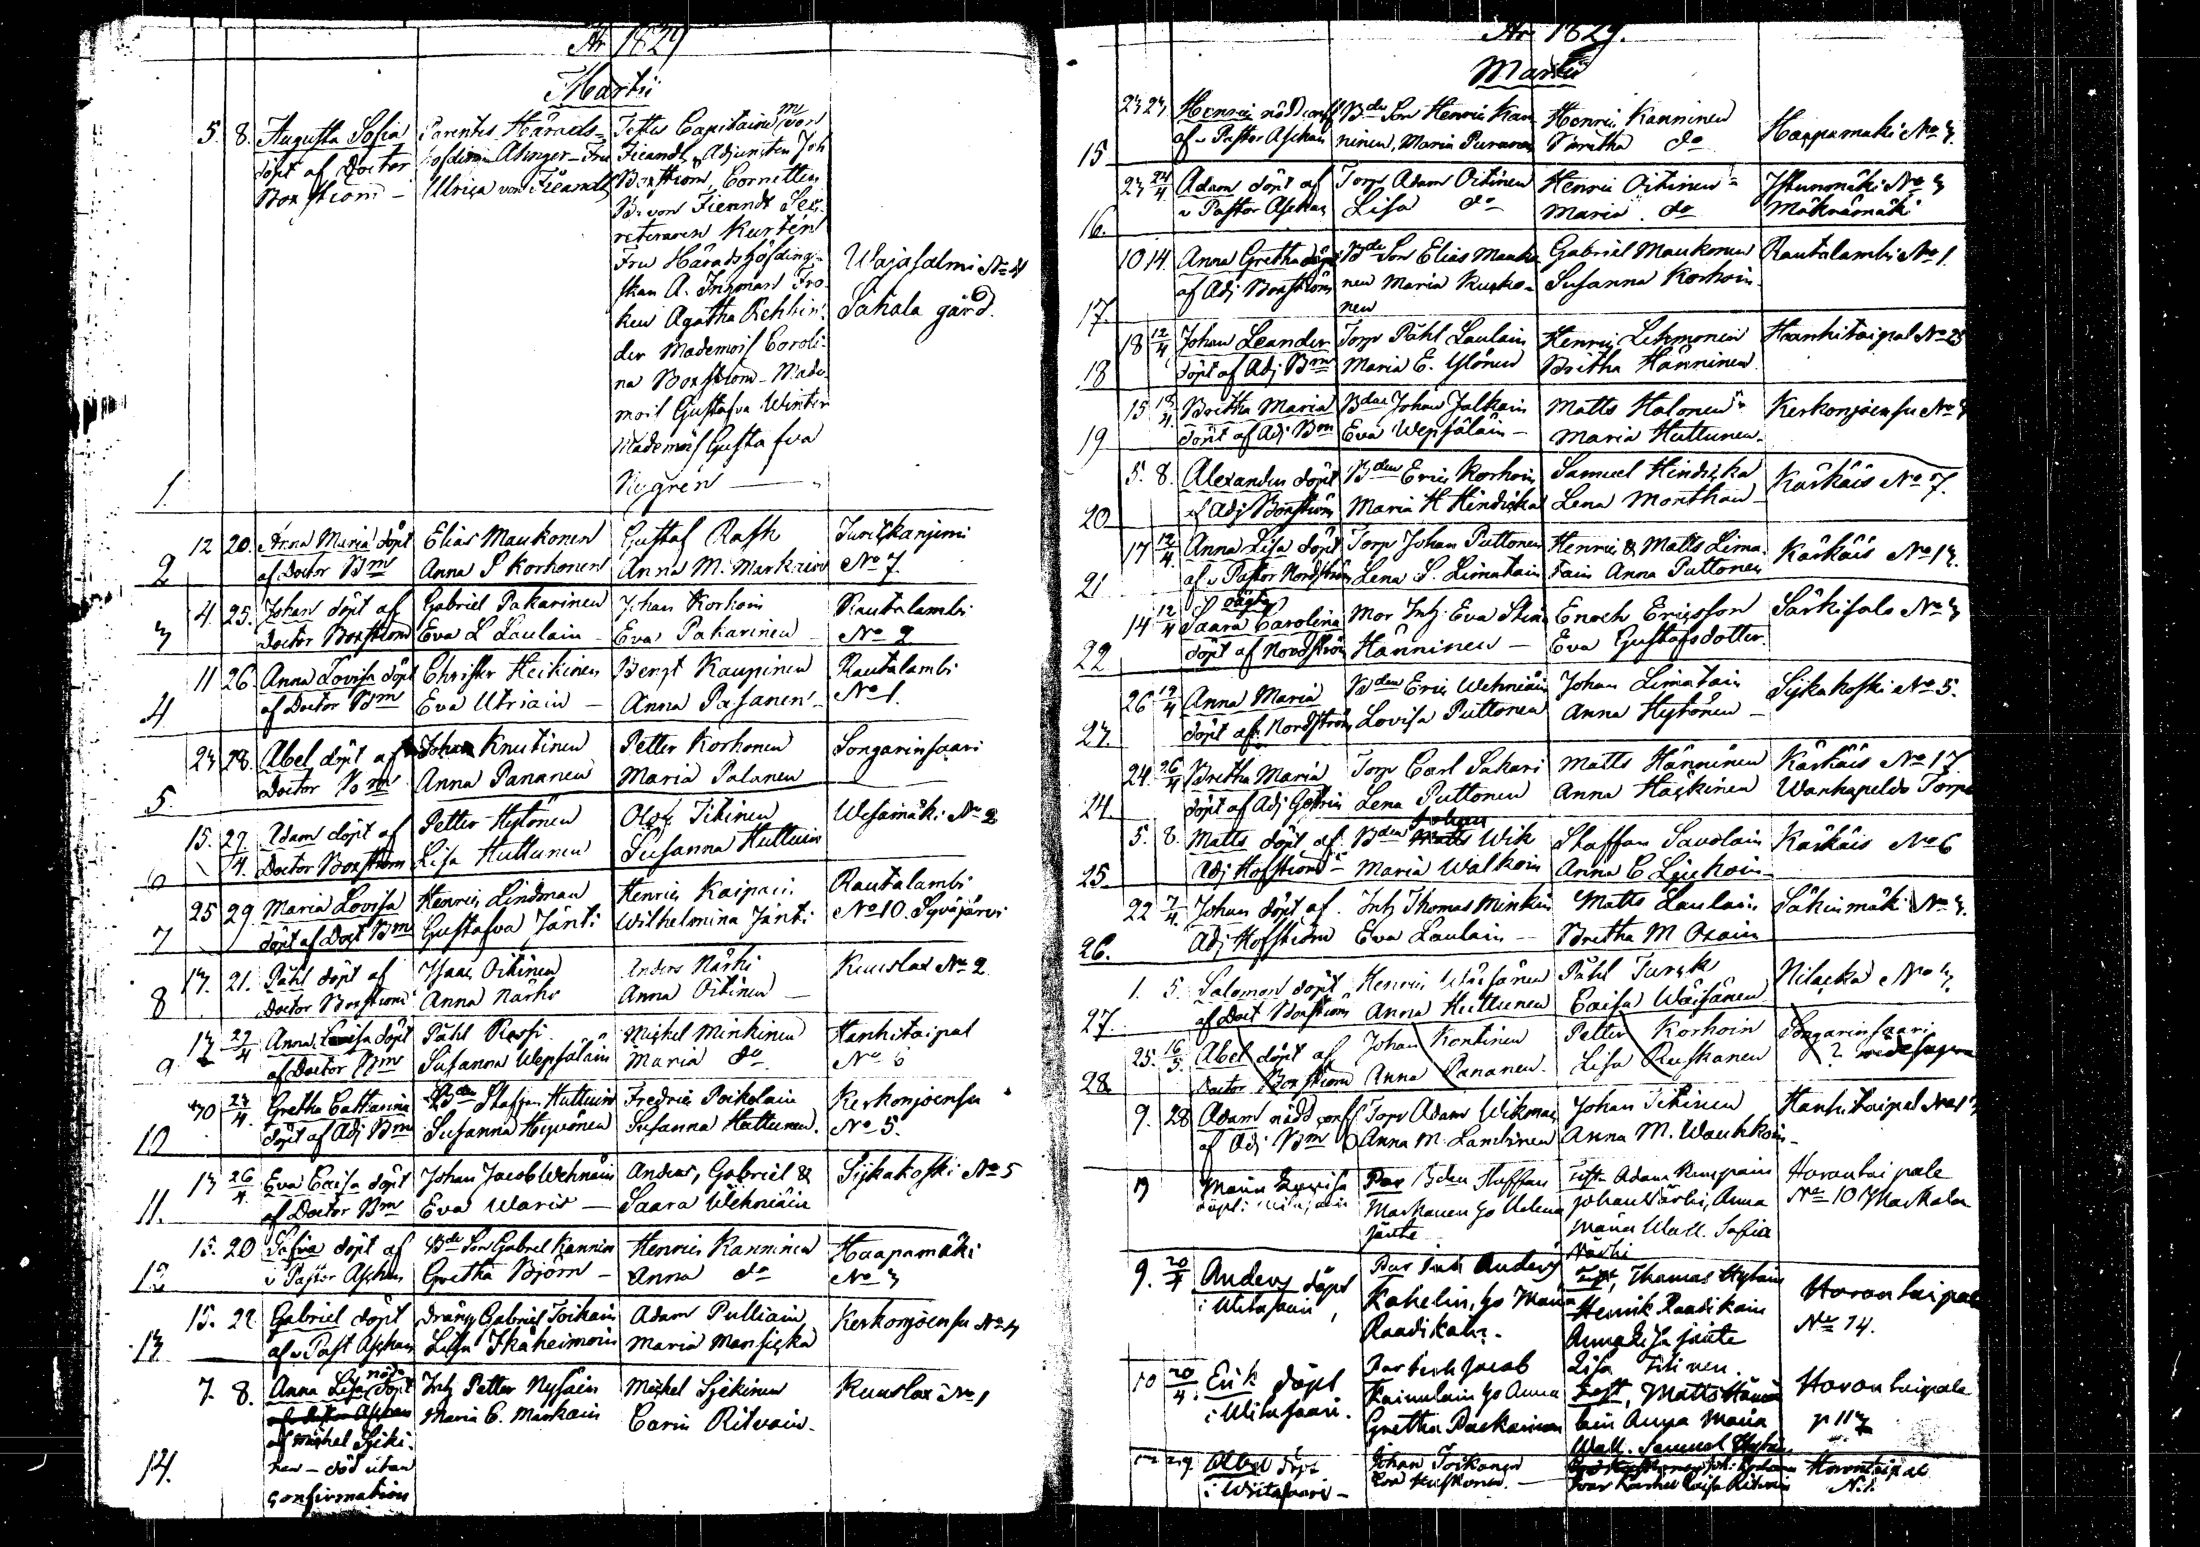 År 1829
Martii
5. 8. Augusta Sofia
döpt af Doctor
Boxström -
Parentes Härads-
höfdingen Alinger - Fru
Ulrica von Fieandt
Testes Capitaine von
Fieandt, Adjuncten Joh
Boxström, Cornetten
B. von Fieandt Sec-
reteraren Kurtén
Fru Häradshöfding-
skan A. Ingman Frö-
ken Agatha Rehbin-
der Mademois Caroli-
na Boxström - Made-
mois Gustafva Winter
Mademois Gustafva
Nygrén
Wajasalmi No 4
Sahala gård.
1.
2 12 20. Anna Maria döpt
af Doctor Bm
Elias Maukonen
Anna S Korhonen
Gustaf Rask
Anna M. Markain
Jurickanjemi
No 7.
3 4. 25. Johan döpt af
Doctor Boxström
Gabriel Pakarinen
Eva L Laulain -
Johan Korhoin
Eva Pakarinen
Rautalambi
No 2
4 11 26. Anna Lovisa döpt
af Doctor Bm
Christer Heikinen
Eva Utriain -
Bengt Kaupinen
Anna Pasanen -
Rautalambi
No 1.
5. 23 28. Abel döpt af
Doctor Bm
Johan Knutinen
Anna Pananen
Petter Korhonen
Maria Palanen
Songarinsaari
6 15. 27/4. Adam döpt af
Doctor Boxström
Petter Hytönen
Lisa Huttunen
Olof Titinen
Susanna Huttuin
Wesamäki No 2
7 25 29. Maria Lovisa
döpt af Doct Bm
Henric Lindman
Gustafva Jänti
Henric Kaipain
Wilhelmina Jänti
Rautalambi
No 10. Syväjärvi
8 17. 21. Påhl döpt af
Doctor Boxström
Isaac Oitinen
Anna Närhi
Anders Närhi
Anna Oitinen
Kuuslax No 2
9 13 27/4 Anna Lovisa döpt
af Doctor Bm
Påhl Rossi
Susanna Wepsäläin
Michel Minkinen
Maria do
Hanhitaipal
No 6
10 30 23/4. Gretha Catharina
döpt af Adj Bm
Bden Staffan Huttuin
Susanna Hyvönen
Fredric Poikolain
Susanna Huttunen.
Kerkonjoensu
No 5.
11. 13 26/4. Eva Caisa döpt
af Doctor Bm
Johan Jacob Wehniäin
Eva Waris -
Anders, Gabriel &
Saara Wehniäin
Sijkakoski No 5
12 15. 20 Sofia döpt af
v Pastor Aschan
Bde Son Gabriel Kannin
Gretha Björn -
Henric Kanninen
Anna do
Haapamäki
No 3
13 15. 22 Gabriel döpt
af v Past Aschan
dräng Gabriel Toikain
Lisa Ikäheimoin
Adam Pulliain
Maria Mansicka
Kerkonjoensu No 4
14. 7. 8. Anna Lisa nöd
döpt
af Michel Sjiki-
nen - död utan
confirmation
Inh Petter Nysäin
Maria C. Markain
Michel Sjikinen
Carin Ritvain.
Kuuslax No 1
År 1829.
Martii
15 23 23 Henric nöddöpt conf
af v Pastor Aschan
Bde Son Henric Kan
ninen, Maria Puranen
Henric Kanninen
Bretha do
Haapamäki No 3.
16. 23 24/4. Adam döpt af
v Pastor Aschan
Torp Adam Oitinen
Lisa do
Henric Oitinen
Maria do
Istunmäki No 3
Mäkrämäki
17. 10 14. Anna Gretha döpt
af Adj Boxström
Bde Son Elias Mauko
nen Maria Kucko-
nen
Gabriel Maukonen
Susanna Korhoin
Rautalambi No 1.
18 18 12/4 Johan Leander
döpt af Adj Bm
Torp Påhl Laulain
Maria E. Ylönen
Henric Lehmonen
Britha Hänninen
Hanhitaipal No 23
19 15 18/4. Britha Maria
döpt af Adj Bm
Bden Johan Jalkain
Eva Wepsäläin -
Matts Halonen
Maria Huttunen.
Kerkonjoensu No 3
20 5. 8. Alexander döpt
af Adj Boxström
Bden Eric Korhoin
Maria H Hindicka
Samuel Hindicka
Lena Monthan
Kärkäis No 7.
21 17 12/4 Anna Lisa döpt
af v Pastor Nordström
Torp Johan Puttonen
Lena S. Limatain
Henric & Matts Lima
tain Anna Puttonen
Kärkäis No 13.
22 14 12/4 oägta
Saara Carolina
döpt af Nordström
Mor Inh Eva Stina
Hänninen -
Enoch Ericsson
Eva Gustafsdotter.
Särkisalo No 3
23. 26 12/4 Anna Maria
döpt af Nordström
Bden Eric Wehniäin
Lovisa Puttonen
Johan Limatain
Anna Hytönen -
Sijkakoski No 5.
24. 24. 26/4 Bretha Maria
döpt af Adj
Torp Carl Sakari
Lena Puttonen
Matts Hänninen
Anna Häckinen
Kärkäis No 17.
Wanhapeldo Torp
25. 5. 8. Matts döpt af
Adj Hofström
Bden Johan Wik
Maria Walkoin
Staffan Savolain
Anna C Liukoin
Kärkäis No 6
26. 22 7/4. Johan döpt af.
Adj Hofström
Inh Thomas Minkin
Eva Laulain -
Matts Laulain
Bretha M Oxain
Säkinmäki No 3.
27. 1. 5. Salomon döpt
af Doct Boxström
Henric Wäisänen
Anna Huttunen
Påhl Turck
Caisa Wäisänen
Nilacka No 3.
28. 25. 16/5. Abel döpt af
Doctor Boxström
Johan Kontinen
Anna Pananen.
Petter Korhoin
Lisa Ruskanen
Songarinsaari
? vide supra
9. 28 Adam nöddöpt conf
af Adj Bm
Torp Adam Wikman
Anna M. Lambinen
Johan Titinen
Anna M. Wauhkoin -
Hanhitaipal No 13
9 Maria Lovisa
döpt i Witasaari
Par Bden Staffan
Markanen ho Helena
Jänte
Test. Adam Kumpain
Johan Närhi, Anna
Maria Wall. Sofia
Närhi
Hovontaipale
No 10 Maskala
9. 20/4 Anders döpt
i Witasaari,
Par Inh Anders
Kahelin, ho Maria
Raadikain.
Test, Thomas Hytöin
Henrik Raadikain
Anna Lisa Jänte
Lisa Titinen.
Hovontaipale
No 14.
10 20/4. Erik döpt
i Witasaari.
Par Inh Jacob
Kainulain ho Anna
Gretha Packarinen
Test, Matts
lain Anna Maria
Wall. Samuel Hytöin
Hovontaipale
12 29 Abel döpt
i Witasaari -
Johan Toikanen
Eva Huskonen. -
Hovontaipale
No 1.